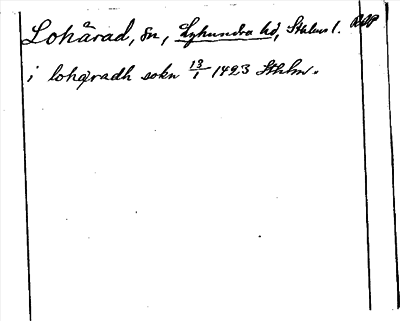 Lohärad, sn, Lyhundra hd, Sthlms l. RAP
i loharadh sokn 13/1 1423 Sthlm.